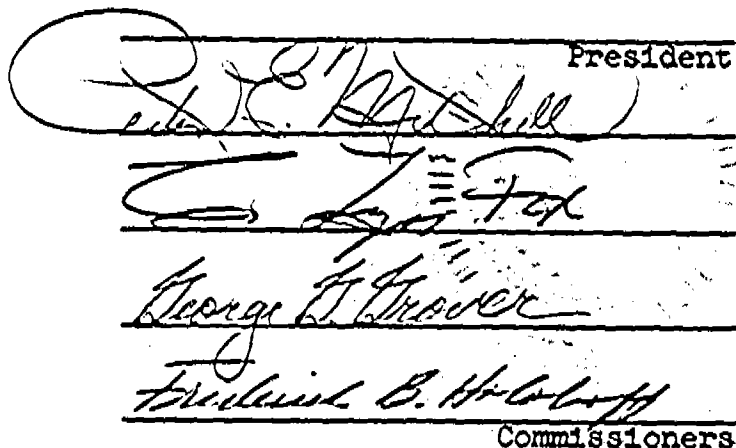 President
Peter E. Mitchell
Fox
George G. Grover
Frederick B. Holoboff
Commissioners